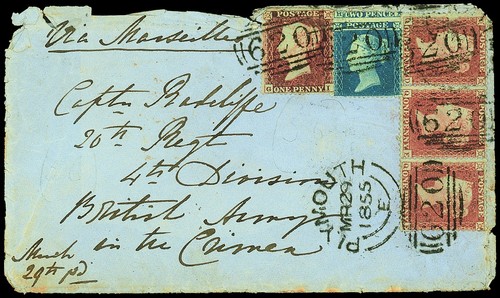 Via Marseilles
POSTAGE
ONE PENNY
TWO PENCE
POSTAGE
620
620
620
620
Captn Radcliffe
20th Regt
4th Division
British Army
in the Crimea
March
29th pd
PLYMOUTH
MR 29
1855
E